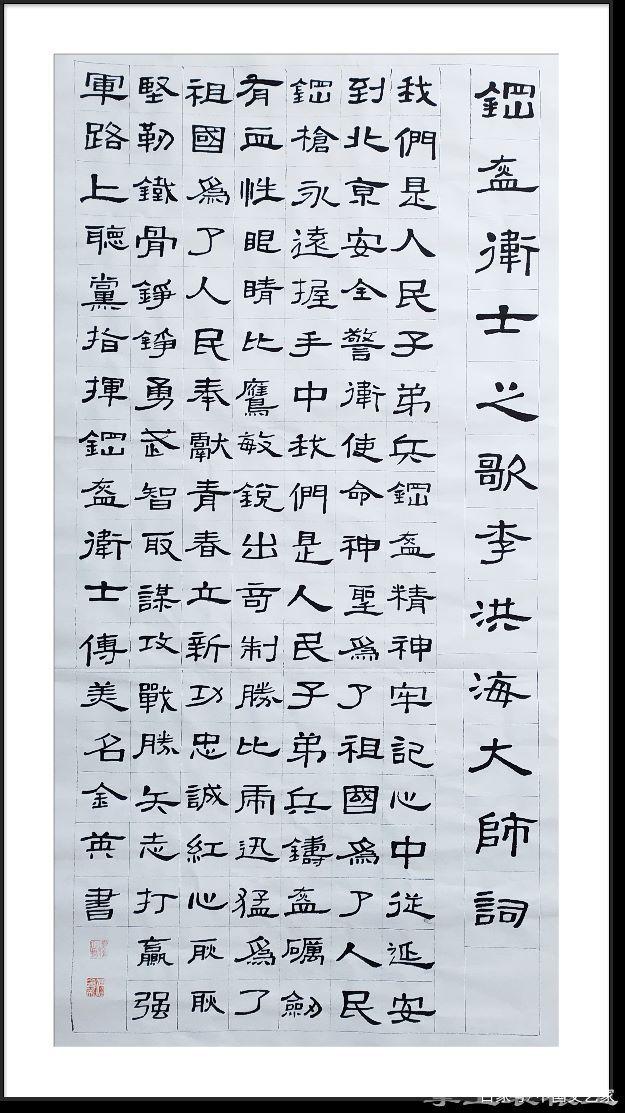 鋼盔衛士之歌李洪海大師詞
我們是人民子弟兵鋼盔精神牢記心中從延安
到北京安全警衛使命神聖爲了祖國爲了人民
鋼槍永遠握手中我們是人民子弟兵鑄盔礪劍
有血性眼睛比鷹敏銳出奇制勝比虎迅猛爲了
祖國爲了人民奉獻青春立新功忠誠紅心耿耿
堅靭鐵骨錚錚勇武智取謀攻戰勝矢志打贏强
軍路上聽黨指揮鋼盔衛士傳美名金英書